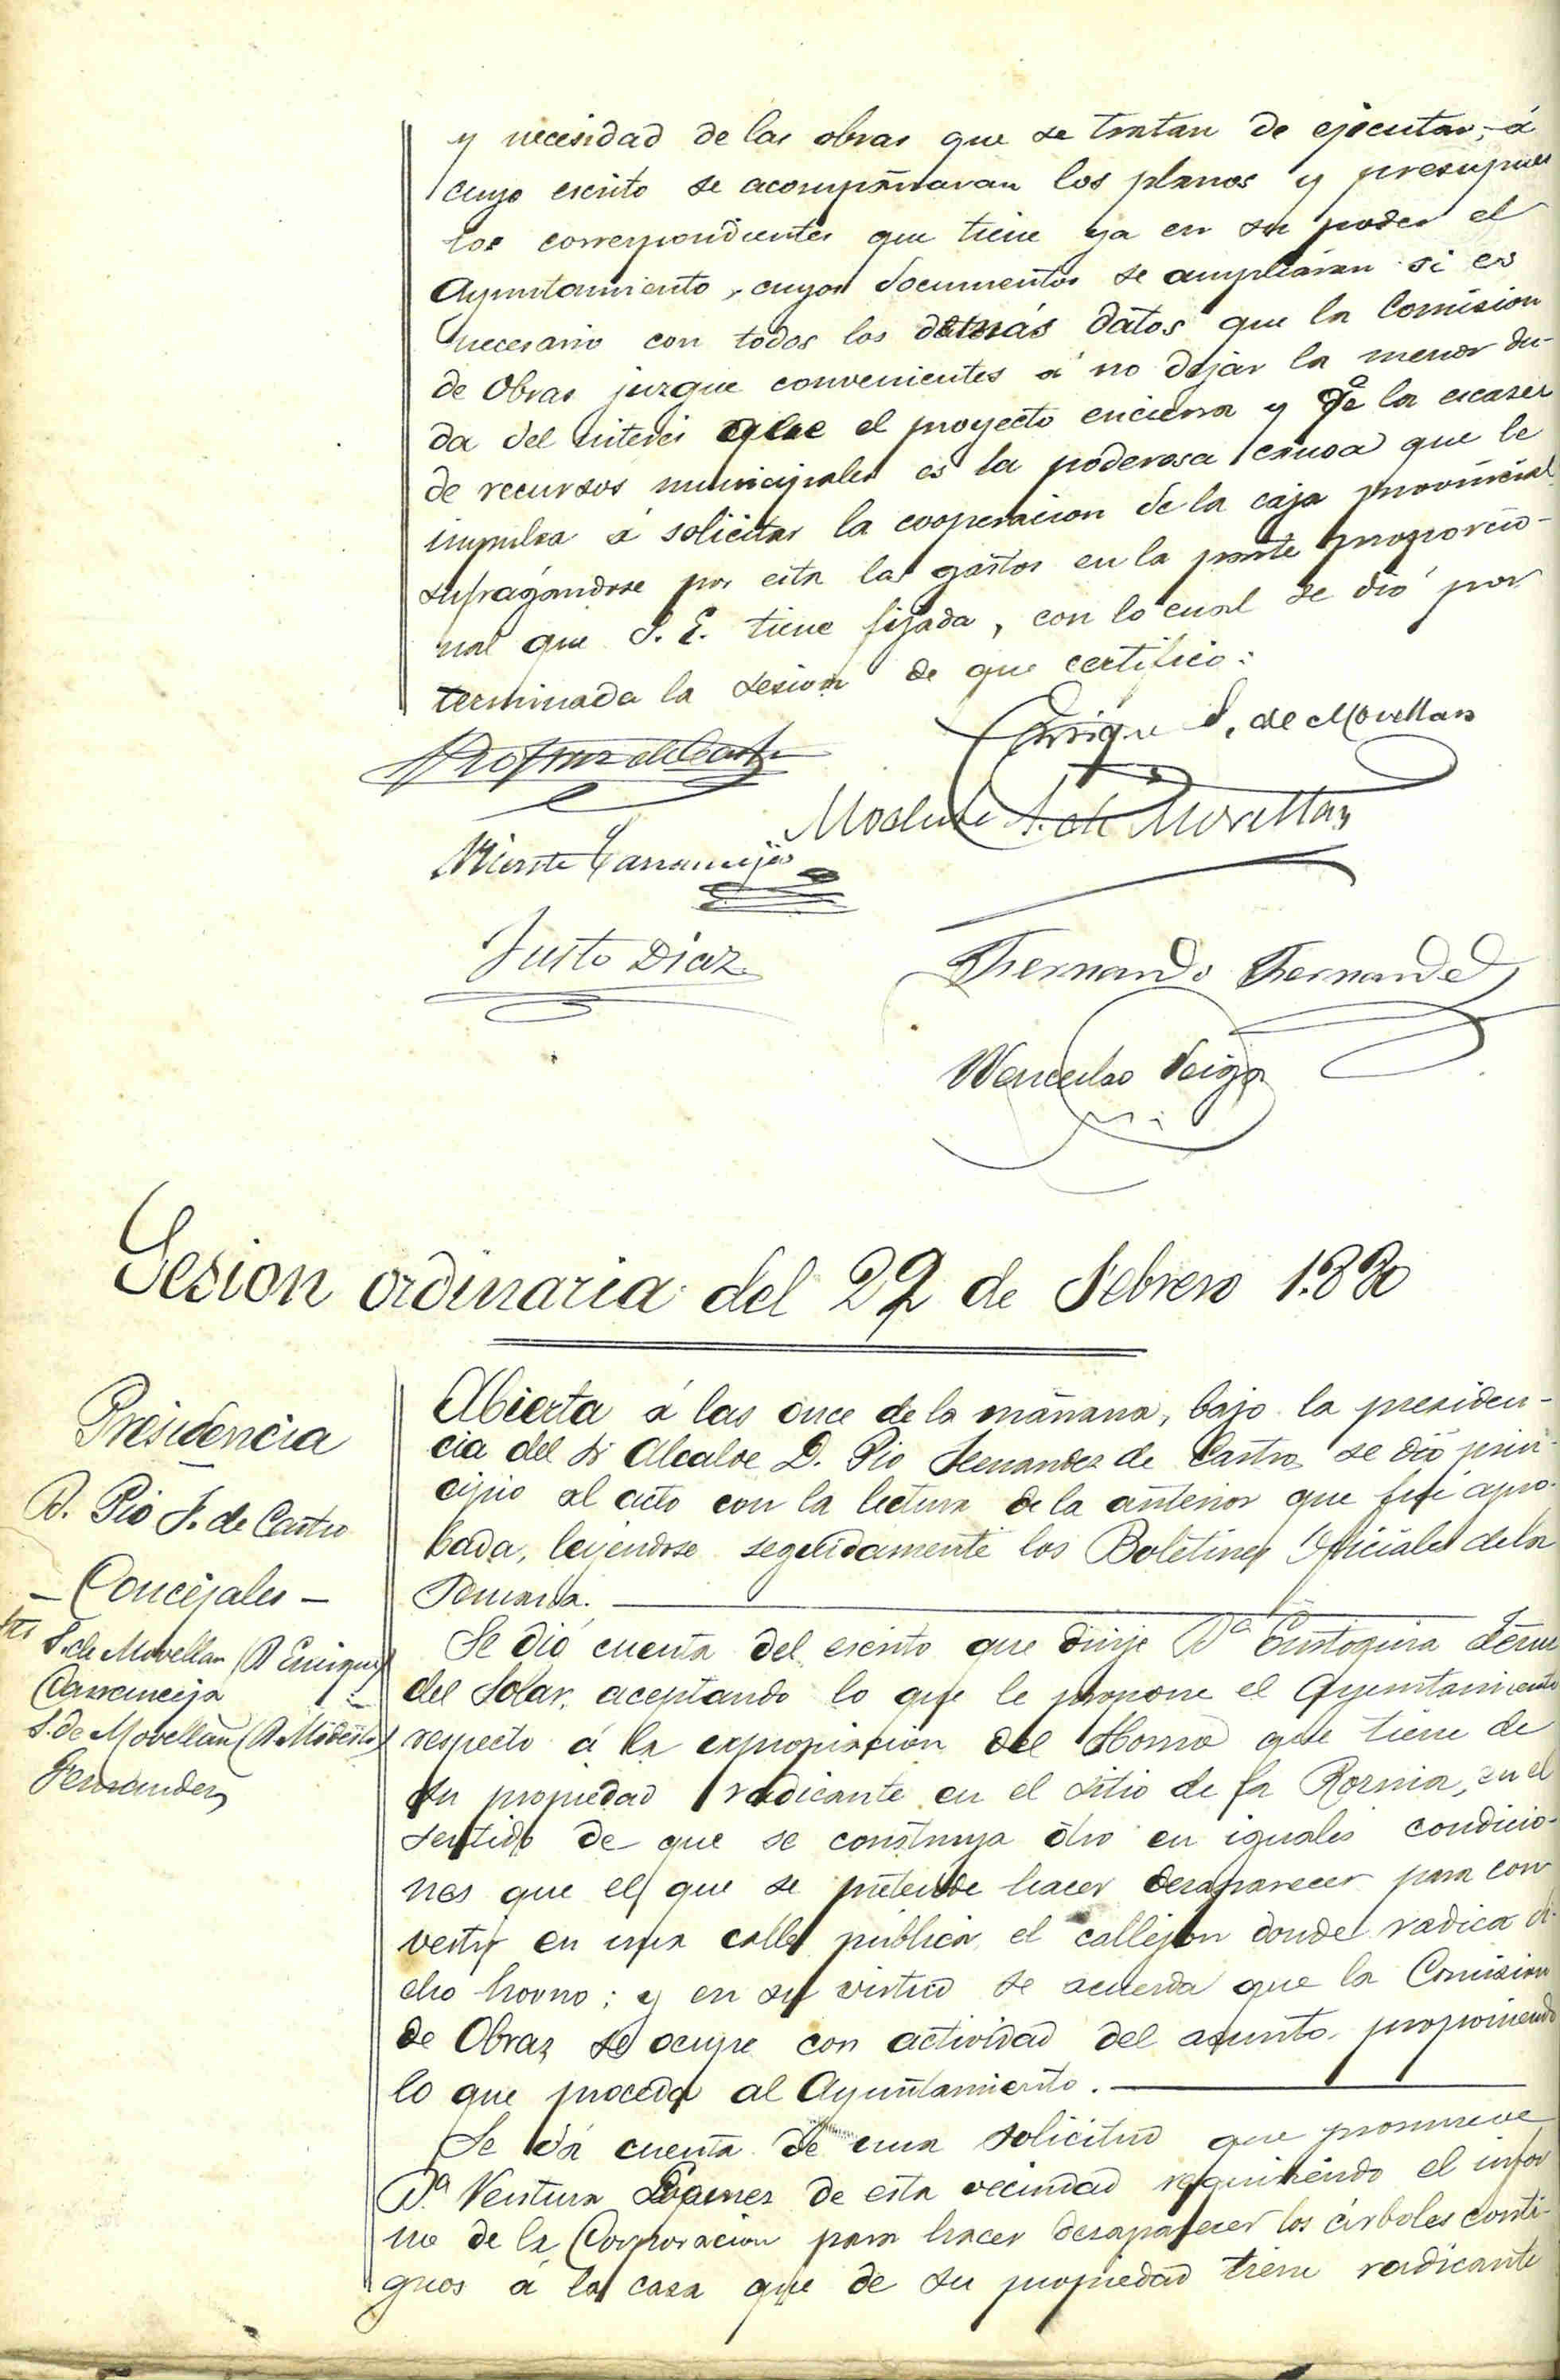 y necesidad de las obras que se tratan de ejecutar, á
cuyo escrito se acompañaran los planos y presupues
tos correspondientes que tiene ya en su poder el
Ayuntamiento, cuyos documentos se ampliarán si es
necesario con todos los demás datos que la Comision
de Obras juzgue convenientes á no dejar la menor du-
da del interés que el proyecto encierra y qe la escasez
de recursos municipales es la poderosa causa que le
impulsa á solicitar la cooperacion de la caja provincial
sufragándose por esta los gastos en la parte proporcio-
nal que S. E. tiene fijada, con lo cual se dió por
terminada la sesion de que certifico:
Enrique S. de Movellan
Pio Fernz de Castro
Modesto S. de Movellan
Vicente Carranceja
Justo Diaz
Fernando Fernandez
Wenceslao Veiga
Sesion ordinaria del 22 de Febrero 1.880
Presidencia
D. Pio F. de Castro
- Concejales -
S. de Movellan (D Enrique)
Carranceja
S. de Movellan (D Modesto)
Fernandez
Abierta á las once de la mañana, bajo la presiden-
cia del Sr Alcalde D. Pio Fernandez de Castro se dió prin-
cipio al acto con la lectura de la anterior que fué apro-
bada, leyendose seguidamente los Boletines Oficiales de la
Semana.
Se dió cuenta del escrito que dirije Da Eustoquia
del Solar, aceptando lo que le propone el Ayuntamiento
respecto á la expropiacion del Horno que tiene de
su propiedad radicante en el sitio de la, en el
sentido de que se construya otro en iguales condicio-
nes que el que se pretende hacer desaparecer para con
vertir en una calle pública el callejon donde radica di-
cho horno; y en su virtud se acuerda que la Comision
de Obras se ocupe con actividad del asunto, proponiendo
lo que proceda al Ayuntamiento.
Se dá cuenta de una solicitud que promueve
D.a Ventura de esta vecindad requiriendo el infor
me de la Corporacion para hacer desaparecer los árboles conti-
guos á la casa que de su propiedad tiene radicante